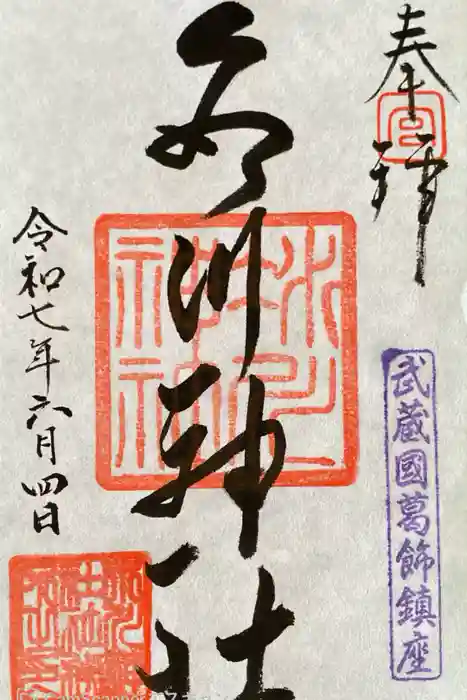 奉拝
宮
武蔵國葛飾鎮座
氷川神社
令和七年六月四日